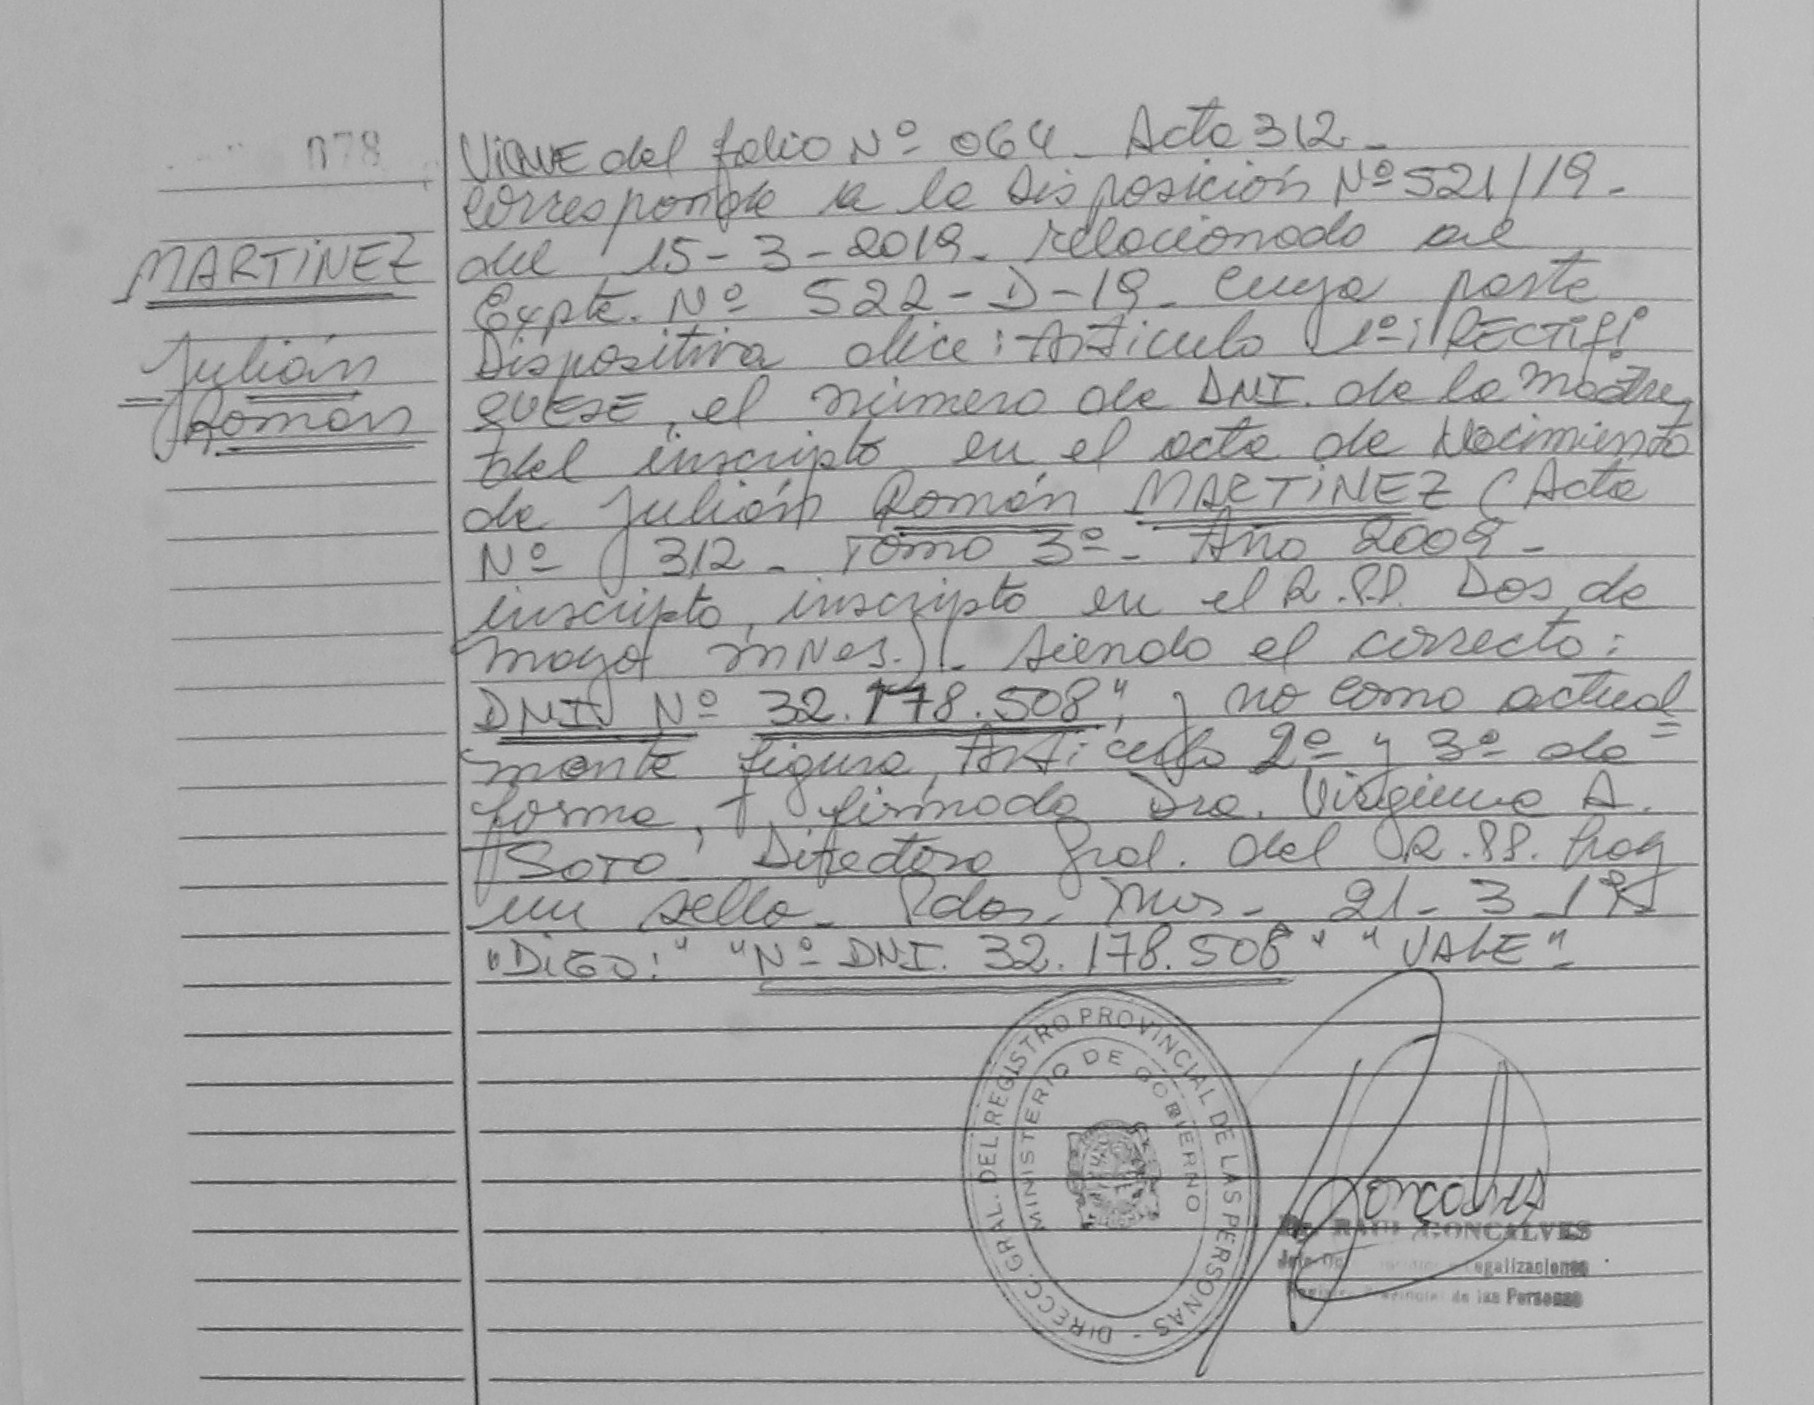 078
MARTINEZ
Julián
Román
ViENE del folio Nº 064 - Acta 312 -
Corresponde a la Disposición Nº 521/19 -
del 15-3-2019 - relacionado al
Expte. Nº 522-D-19 - cuya parte
Dispositiva dice: Articulo 1º: RECTIFI
QUESE, el número de DNI. de la Madre,
del inscripto en el acta de Nacimiento
de Julián Román MARTINEZ (Acta
Nº 312 - Tomo 3º - Año 2009 -
inscripto, inscripto en el R.PP. Dos de
Mayo Mnes.) - siendo el correcto:
DNI. Nº 32.178.508", y no como actual=
mente figura, Articulo 2º y 3º de
forma, firmado Dra. Virginia A.
Soto Directora Gral. del R.PP. hay
un sello - Pdas. Mnes - 21-3-19
"DiGO:" "Nº DNI. 32.178.508" "VALE" -
DIRECC. GRAL. DEL REGISTRO PROVINCIAL DE LAS PERSONAS -
MINISTERIO DE GOBIERNO
Goncalves
RAUL GONCALVES
Legalizaciones
Provincial de las Personas